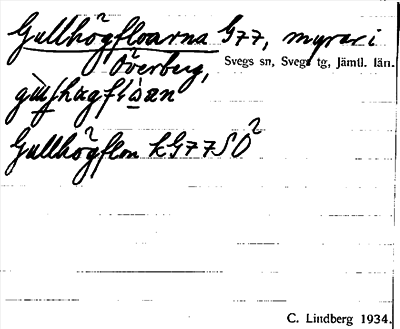 Gullhögfloarna G77, myrar i
Överberg,
Svegs sn, Svegs tg, Jämtl. län.
Gullhögflon kG77SO²
C. Lindberg 1934.